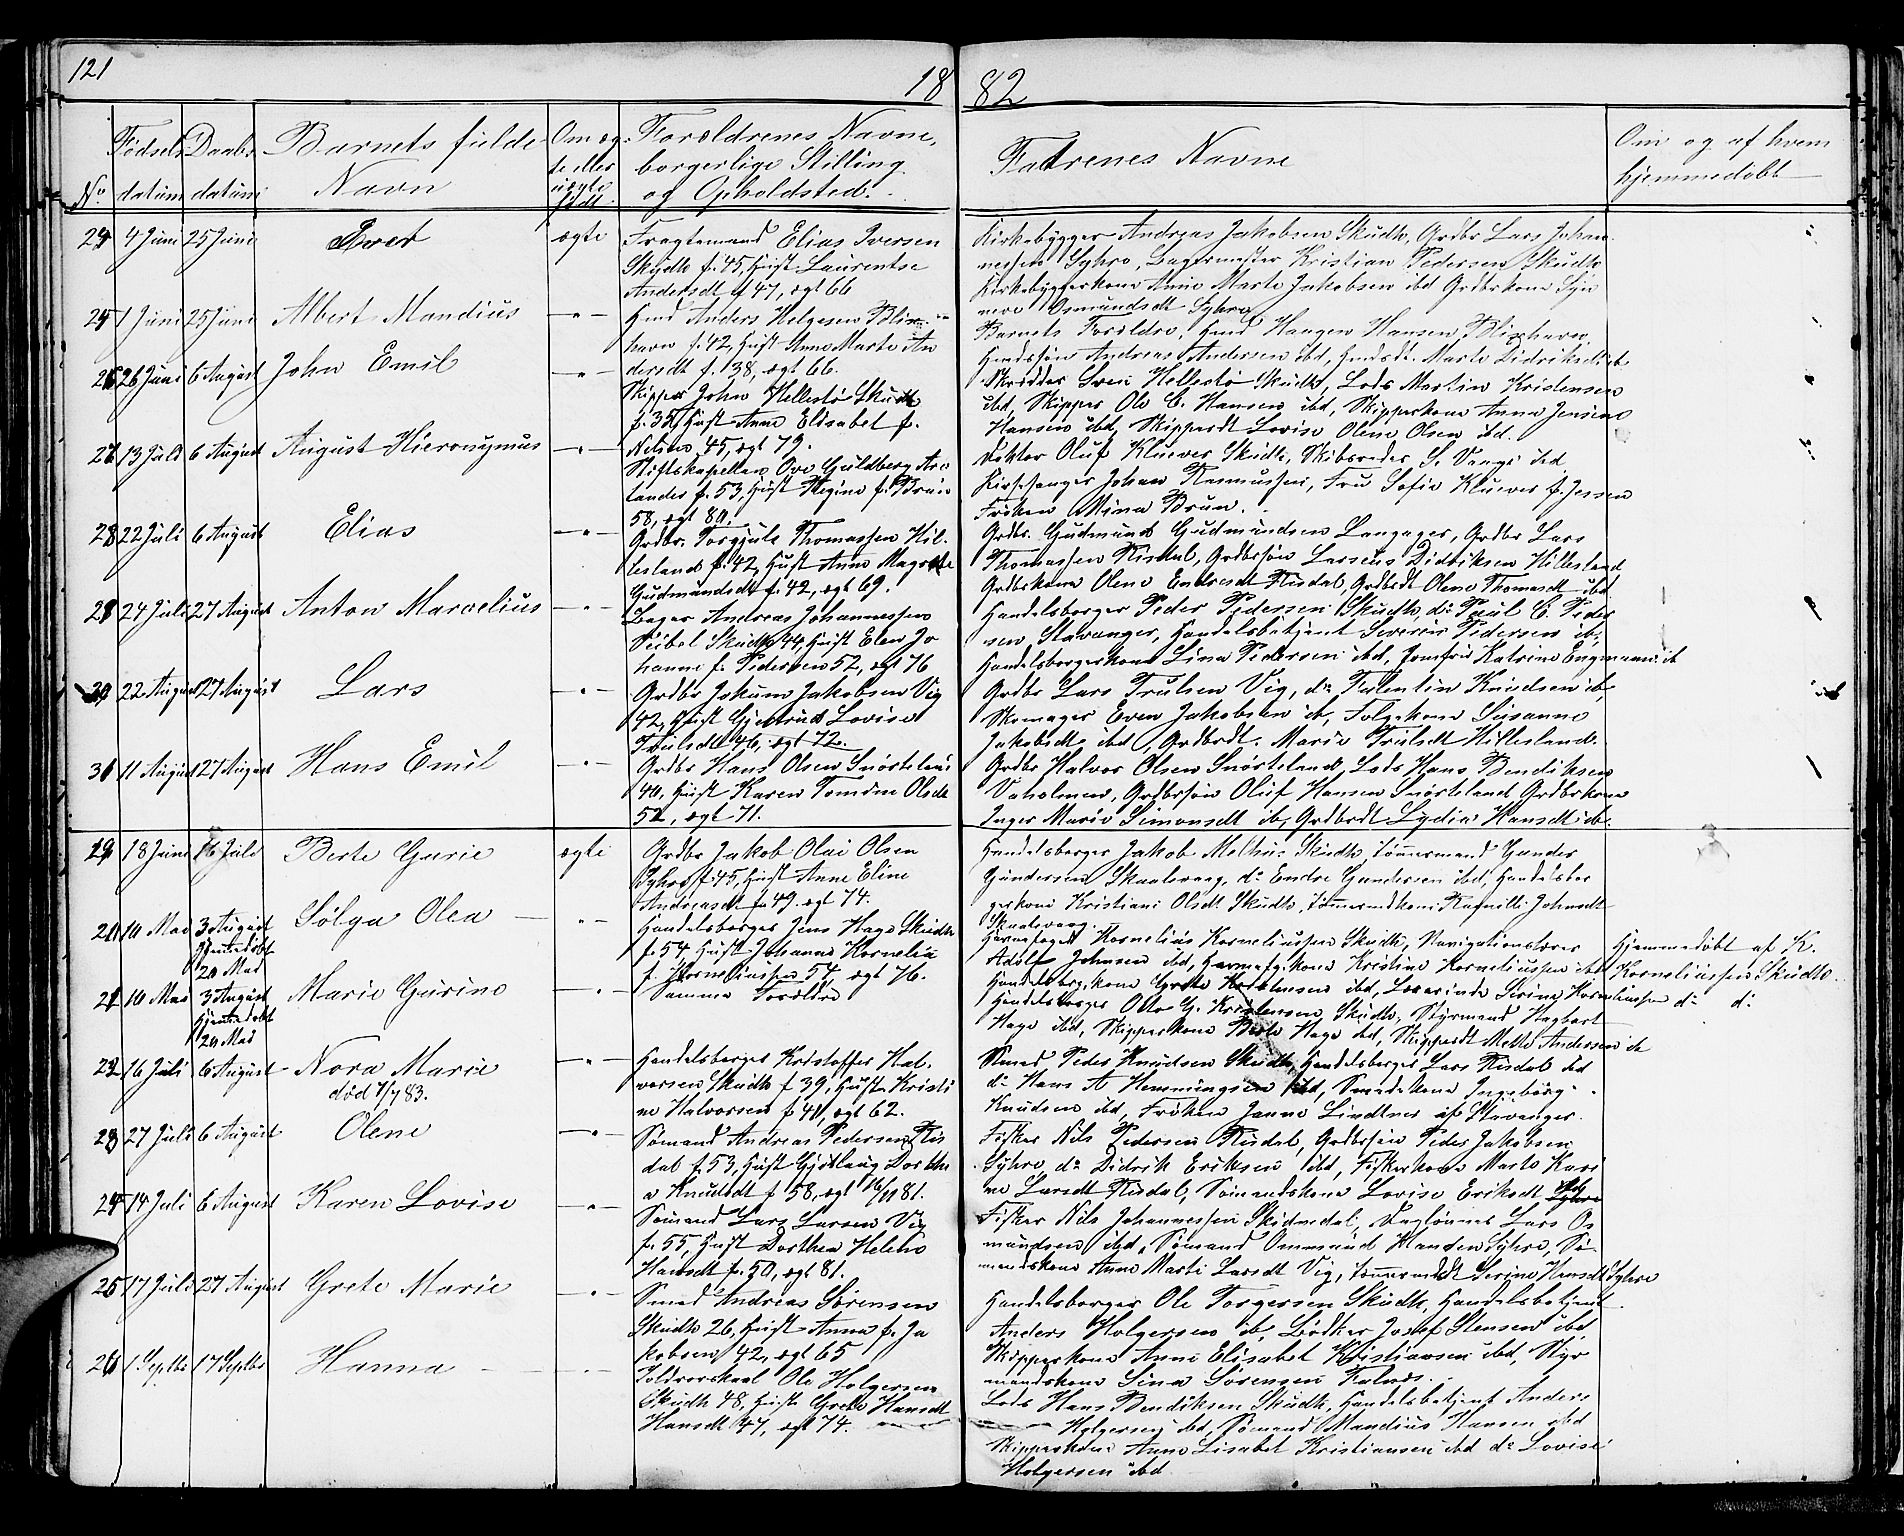 121
18 82
No
Fødsels datum
Daabs datum
Barnets fulde Navn
Om ægte eller uægte født.
Forældrenes Navne, borgerlige Stilling og Opholdsted.
Fadrenes Navne
Om og af hvem hjemmedøbt
24 4 Juni 25 Juni Iver ægte
Fragtemand Elias Iversen
Skudh f. 45, Hust Laurentse
Andersdt f 47, ægt 66
Kirkebygger Andreas Jakobsen Skudh, Grdbr Lars Johan
nessen Syhre, Bagermester Kristian Pedersen Skudh
Kirkebyggerkone Anne Marte Jakobsen ibd Grdbrkone Syn
neve Osmundsdt Syhre
25 1 Juni 25 Juni Albert Mandius — " —
Hmd Anders Helgesen Blix
havn f. 42, Hust Anne Marte An
dersdt f. 38, ægt 66.
Barnets Forældre, Hmd Haagen Hansen Blixhavn,
Hmdssøn Andreas Andersen ibd, Hmdsdt. Marte Didriksdt ib
26 26 Juni 6 August John Emil — " —
Skipper John Hellestø Skudh
f. 35, Hust Anne Elisabet f.
Nelsen 45, ægt 79.
Skrædder Sven Hellestø Skudh, Lods Martin Kristensen
ibd, Skipper Ole C. Hansen ibd, Skipperkone Anna Jensine
Hansen ibd, Skipperdt Lovise Olene Olsen ibd.
27 13 Juli 6 August August Hieronymus — " —
Stiftskapellan Ove Guldberg Are
lander f. 53, Hust Regine f. Brun
58, ægt 80.
Doktor Oluf Kluwer Skudh, Skibsreder S. Vange ibd
Kirkesanger Johan Rasmussen, Fru Sofie Kluwer f. Jessen
Frøken Mina Brun.
28 22 Juli 6 August Elias — " —
Grdbr. Torgjuls Thomassen Hil
lesland f. 42, Hust Anne Magrete
Gudmundsdt f. 42, ægt 69.
Grdbr. Gudmund Gudmundsen Langager, Grdbr Lars
Thomassen Risdal, Grdbrsøn Larseus Didriksen Hillesland
Grdbrkone Olene Endresdt Risdal, Grdbrdt Olene Thomasdt ibd
29 24 Juli 27 August Anton Marselius — " —
Bager Andreas Johannessen
Veibel Skudh 44, Hust Elen Jo
hanne f. Pedersen 52, ægt 76
Handelsborger Peder Pedersen Skudh, do Paul C. Peder
sen, Stavanger, Handelsbetjent Severin Pedersen ib,
Handelsborgerkone Lina Pedersen ibd, Jomfru Katrine Engmann ib
30 22 August 27 August Lars — " —
Grdbr Jokum Jakobsen Vig
42, Hust Gjertrud Lovise
Trulsdt 46, ægt 72.
Grdbr Lars Trulsen Vig, do Falentin Knudsen ib,
Skomager Even Jakobsen ib, Følgekone Susanne
Jakobsdt ibd, Grdbrdt. Marie Trulsdt Hillesland.
31 11 August 27 August Hans Emil — " —
Grdbr Hans Olsen Snørteland
40, Hust Karen Tomine Olsdt
52, ægt 71.
Grdbr Halvor Olsen Snørteland, Lods Hans Bendiksen
Vaholmen, Grdbrsøn Oluf Hansen Snørteland Grdbrkone
Inger Marie Simonsdt ib, Grdbrdt Lydia Hansdt ib.
19 18 Juni 16 Juli Berte Gurie ægte
Grdbr Jakob Olai Olsen
Syhre f. 45, Hust Anne Eline
Andreasdt f. 49. ægt 74.
Handelsborger Jakob Melhus Skudh, Tømmermand Gunder
Gundersen Skaalevaag, do Endre Gundersen ibd, Handelsbor
gerkone Kristiane Olsdt Skudh, Tømmermdkone Ragnille Johnsdt
Skaalevaag.
20 10 Mai 3 August Sølga Olea — " —
Hjemmedøbt
20 Mai
Handelsborger Jens Hage Skudh
f. 54, Hust Johanne Kornelia
f. Korneliussen 54, ægt 76.
Havnefoged Kornelius Korneliussen Skudh, Navigationslærer
Adolf Johnsen ibd, Havnefg.kone Kristine Korneliussen ibd
Handelsbrg.kone Grete Kristensen ibd, Lærerinde Serine Korneliussen
Hjemmedøbt af K.
Korneliussen Skudh.
21 10 Mai 3 August Marie Gurine — " —
Hjemmedøbt
20 Mai
Samme Forældre
Handelsborger Otto G. Kristensen Skudh, Styrmand Hagbart
Hage ibd, Skipperkone Berte Hage ibd, Skipperdt Mette Andersen ib
do do
22 16 Juli 6 August Nora Marie — " —
død 7/7 83.
Handelsborger Kristoffer Hal
vorsen Skudh f 39, Hust Kristi
ne Halvorsen f 41, ægt 62.
Smed Peder Knudsen Skudh, Handelsborger Lars Risdal ibd
do Hans A Hemmingsen ibd, Smedekone Ingeborg
Knudsen ibd, Frøken Janne Lindtner af Stavanger.
23 27 Juli 6 August Olene — " —
Sømand Andreas Pedersen Ris
dal f. 53, Hust Gjertlaug Dorthe
a Knudsdt f 58, ægt 16/11 81.
Fisker Nils Pedersen Risdal, Grdbrsøn Peder Jakobsen
Syhre, do Didrik Eriksen ibd, Fiskerkone Marte Kari
ne Larsdt Risdal, Sømandskone Lovise Eriksdt Syhre
24 14 Juli 6 August Karen Lovise — " —
Sømand Lars Larsen Vig
f. 55, Hust Dorthea Helene
Hansdt f. 50, ægt 81.
Fisker Nils Johannessen Skidnedal, Dagløner Lars Os
mundsen ibd, Sømand Ommund Hansen Syhre, Sø
mandskone Anne Marte Larsdt Vig, Tømmermdt Serine Hansdt Syhre
25 17 Juli 27 August Grete Marie — " —
Smed Andreas Sørensen
Skudh 26, Hust Anna f. Ja
kobsen 42, ægt 65
Handelsborger Ole Torgersen Skudh, Handelsbetjent
Anders Holgersen ib, Bødker Josef Stensen ibd
Skipperkone Anne Elisabet Kristiansen ibd, Styr
mandskone Sina Sørensen Falnes.
26 1 Septbr 17 Septbr Hanna — " —
Toldrorskarl Ole Holgersen
Skudh 48, Hust Grete Hansdt
Hansdt 47, ægt 74.
Lods Hans Bendiksen Skudh, Handelsbetjent Anders
Holgersen ibd, Sømand Mandius Hansen ibd
Skipperkone Anne Lisabet Kristiansen ibd do Lovise
Holgersen ibd